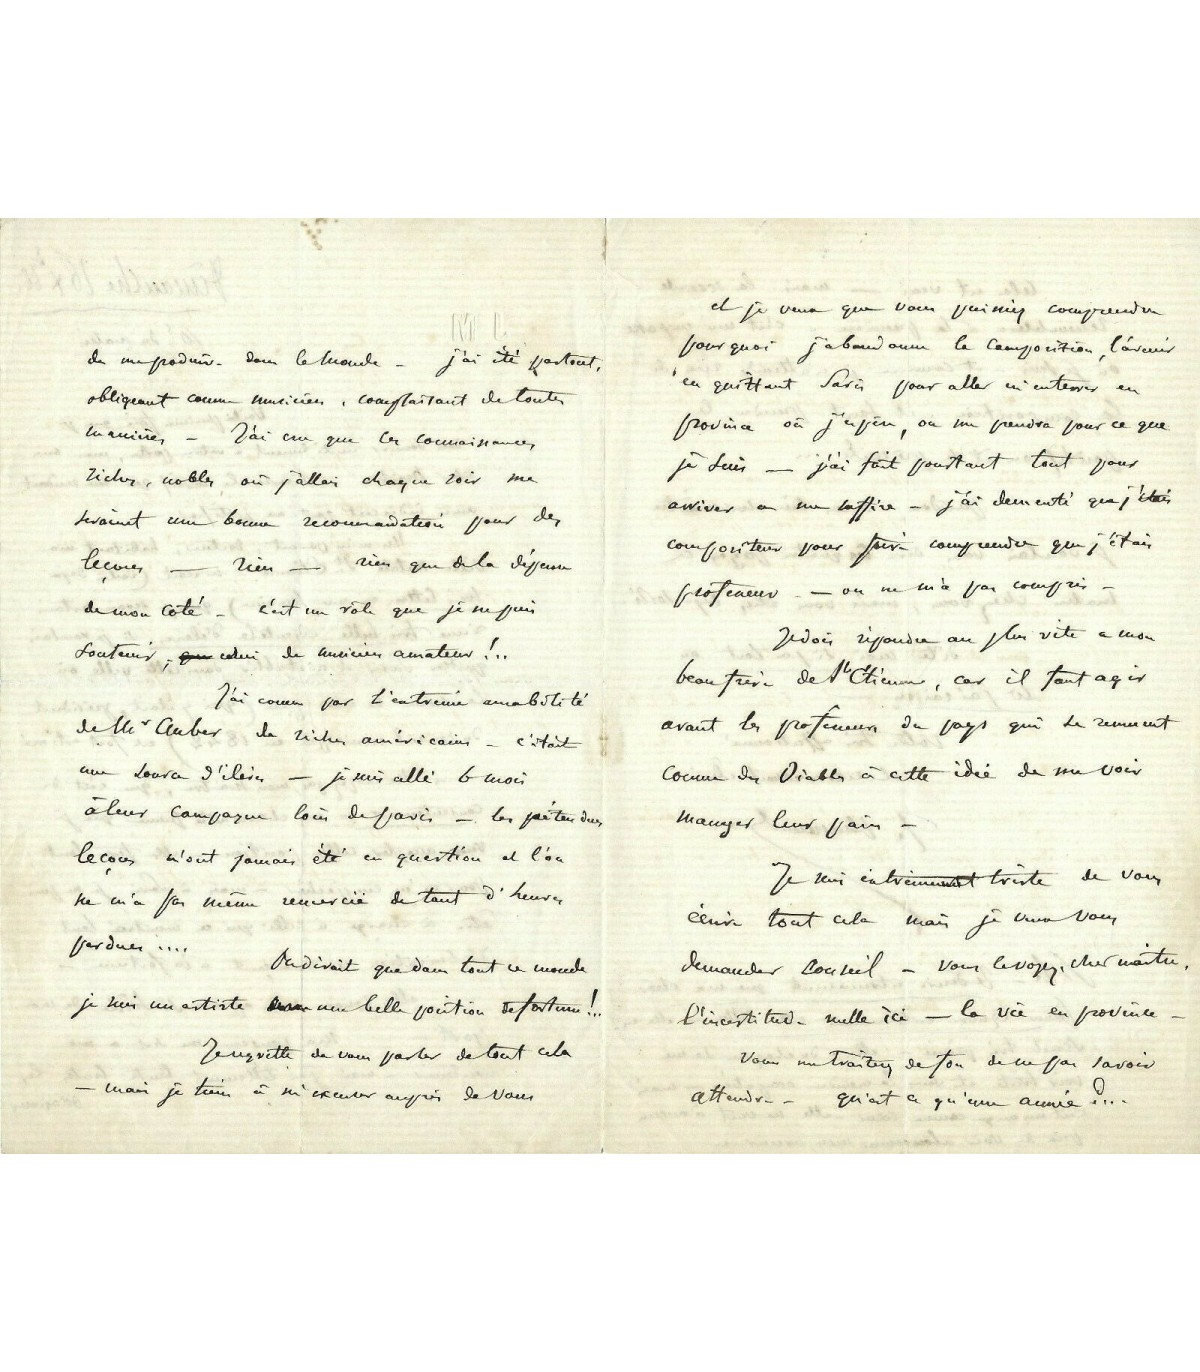 de me produire dans le monde — j'ai été partout,
obligeant comme musicien, complaisant de toutes
manières — J'ai cru que les connaissances
riches, nobles, où j'allais chaque soir me
seraient une bonne recommandation pour des
leçons — rien — rien que de la dépense
de mon coté — c'est un rôle que je ne puis
soutenir, que celui de musicien amateur !..
J'ai connu par l'extrême amabilité
de Mr Auber de riches américains — c'était
une source d'élèves — je suis allé 6 mois
à leur campagne loin de Paris — les prétendues
leçons n'ont jamais été en question et l'on
ne m'a pas même remercié de tant d'heures
perdues ....
On dirait que dans tout ce monde
je suis un artiste une belle position de fortune !..
Je regrette de vous parler de tout cela
— mais je tiens à m'excuser auprès de vous
et je veux que vous puissiez comprendre
pourquoi j'abandonne la composition, l'avenir
en quittant Paris pour aller m'enterrer en
province où j'espère, on me prendra pour ce que
je suis — j'ai fait pourtant tout pour
arriver a me suffire — j'ai dementi que j'étais
compositeur pour faire comprendre que j'étais
professeur — on ne m'a pas compris —
Je dois répondre au plus vite a mon
beau frère de St Etienne, car il faut agir
avant les professeurs du pays qui se remuent
comme des Diables à cette idée de me voir
manger leur pain —
Je suis extrêmement triste de vous
écrire tout cela mais je veux vous
demander conseil — vous le voyez, cher maître,
l'incertitude nulle ici — la vie en province —
Vous me traitez de fou de ne pas savoir
attendre — qu'est ce qu'une année ?...